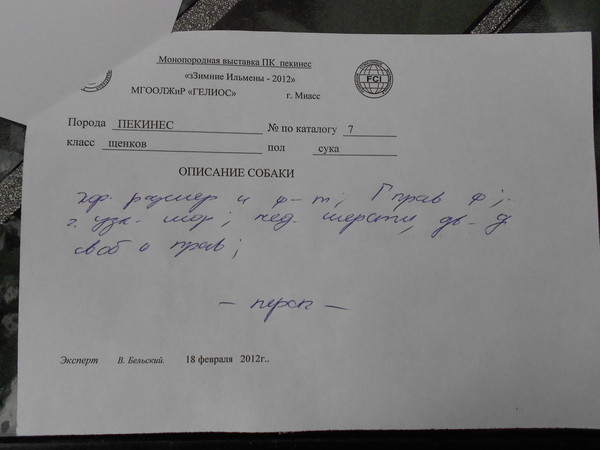 Монопородная выставка ПК пекинес
«зЗимние Ильмены - 2012»
FCI
МГООЛЖиР «ГЕЛИОС» г. Миасс
Порода ПЕКИНЕС № по каталогу 7
класс щенков пол сука
ОПИСАНИЕ СОБАКИ
хор. размер и ф-т; Г прав ф;
г. узк. мор; нед. шерсти, дв-я
своб и прав;
– персп –
Эксперт В. Бельский. 18 февраля 2012г..